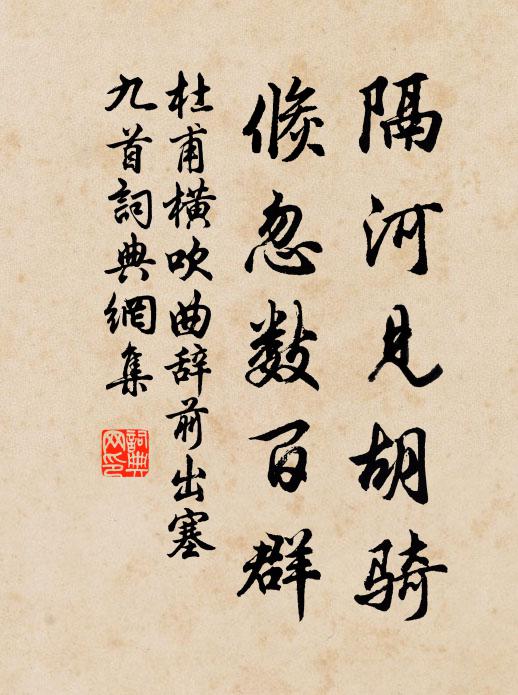 隔河见胡骑
倏忽数百群
杜甫横吹曲辞前出塞
九首词典网集
词典
网印